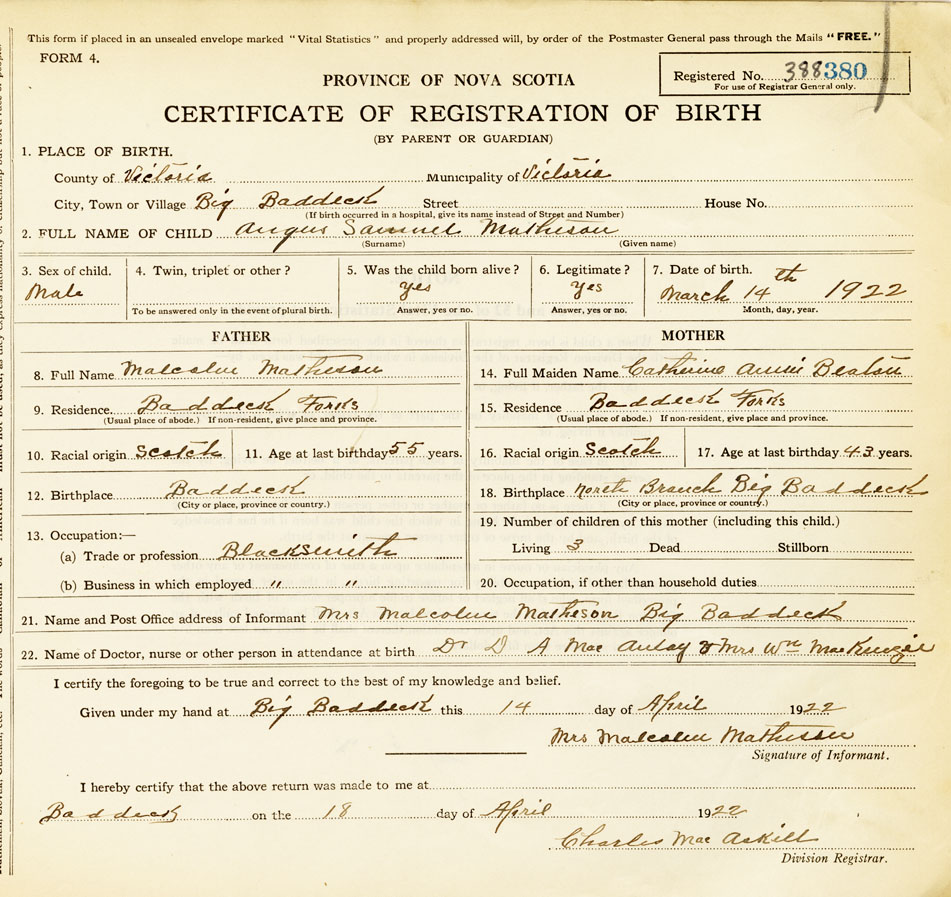 This form if placed in an unsealed envelope marked "Vital Statistics" and properly addressed will, by order of the Postmaster General pass through the Mails "FREE."
FORM 4.
PROVINCE OF NOVA SCOTIA
Registered No. 388380
For use of Registrar General only.
CERTIFICATE OF REGISTRATION OF BIRTH
(BY PARENT OR GUARDIAN)
1. PLACE OF BIRTH.
County of Victoria Municipality of Victoria
City, Town or Village Big Baddeck Street House No.
(If birth occurred in a hospital, give its name instead of Street and Number)
2. FULL NAME OF CHILD Angus Samuel Matheson
(Surname) (Given name)
3. Sex of child. 4. Twin, triplet or other? 5. Was the child born alive? 6. Legitimate? 7. Date of birth.
Male yes yes March 14th 1922
To be answered only in the event of plural birth. Answer, yes or no. Answer, yes or no. Month, day, year.
FATHER
8. Full Name Malcolm Matheson
9. Residence. Baddeck Forks
(Usual place of abode.) If non-resident, give place and province.
10. Racial origin Scotch 11. Age at last birthday 55 years.
12. Birthplace Baddeck
(City or place, province or country.)
13. Occupation:—
(a) Trade or profession Blacksmith
(b) Business in which employed " "
MOTHER
14. Full Maiden Name Catherine Annie Beaton
15. Residence Baddeck Forks
(Usual place of abode.) If non-resident, give place and province.
16. Racial origin Scotch 17. Age at last birthday 43 years.
18. Birthplace North Branch Big Baddeck
(City or place, province or country.)
19. Number of children of this mother (including this child.)
Living 3 Dead Stillborn
20. Occupation, if other than household duties
21. Name and Post Office address of Informant Mrs Malcolm Matheson Big Baddeck
22. Name of Doctor, nurse or other person in attendance at birth Dr D A Mac Aulay & Mrs Wm MacKenzie
I certify the foregoing to be true and correct to the best of my knowledge and belief.
Given under my hand at Big Baddeck this 14 day of April 1922
Mrs Malcolm Matheson
Signature of Informant.
I hereby certify that the above return was made to me at
Baddeck on the 18 day of April 1922
Charles Mac Askill
Division Registrar.